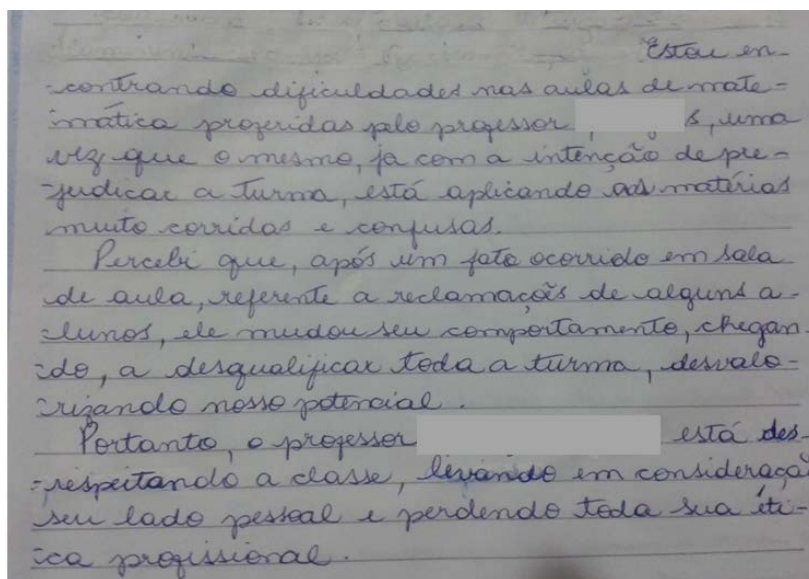 Estou en-
-contrando dificuldades nas aulas de mate-
-mática proferidas pelo professor s, uma
vez que o mesmo, ja com a intenção de pre-
-judicar a turma, está aplicando as matérias
muito corridas e confusas.
Percebi que, após um fato ocorrido em sala
de aula, referente a reclamações de alguns a-
-lunos, ele mudou seu comportamento, chegan-
-do, a desqualificar toda a turma, desvalo-
-rizando nosso potencial.
Portanto, o professor está des-
-respeitando a classe, levando em consideraçã
seu lado pessoal e perdendo toda sua éti-
-ca profissional.